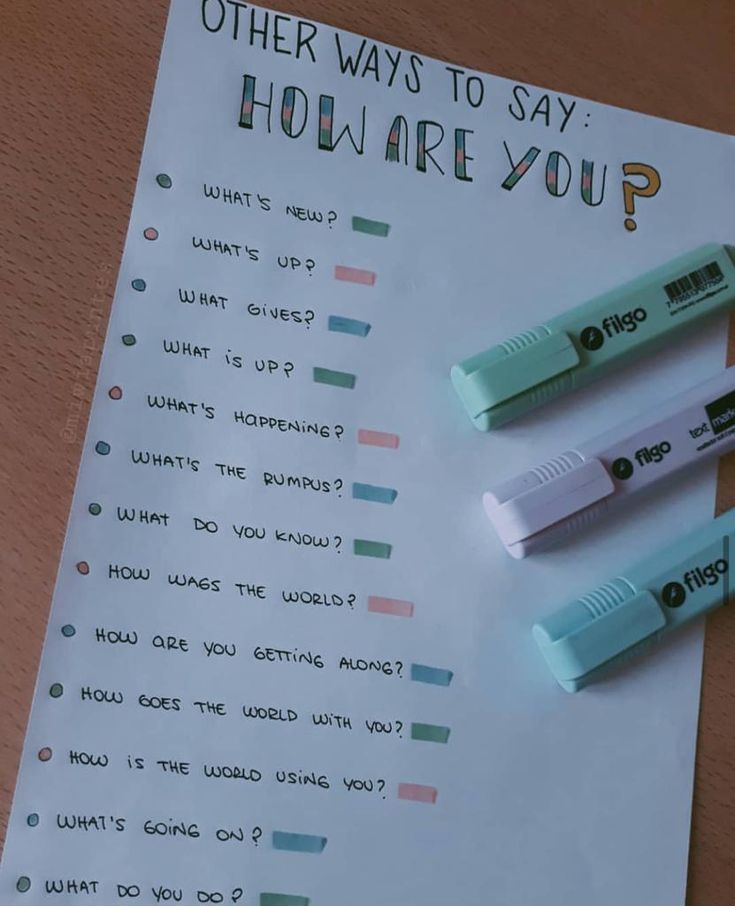 OTHER WAYS TO SAY:
HOW ARE YOU?
WHAT'S NEW?
WHAT'S UP?
WHAT GIVES?
WHAT IS UP?
WHAT'S HAPPENING?
WHAT'S THE RUMPUS?
WHAT DO YOU KNOW?
HOW WAGS THE WORLD?
HOW ARE YOU GETTING ALONG?
HOW GOES THE WORLD WITH YOU?
HOW IS THE WORLD USING YOU?
WHAT'S GOING ON?
WHAT DO YOU DO?
filgo
filgo
text mark
filgo